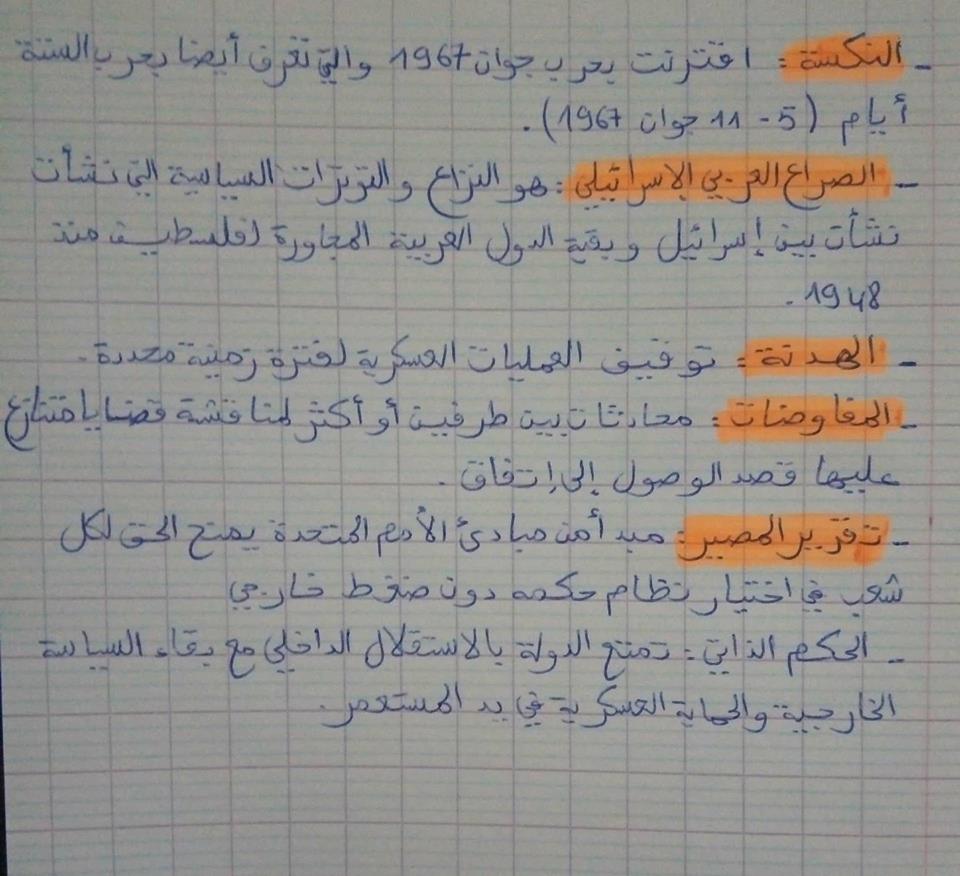 - النكسة : اقترنت بحرب جوان 1967 والتي تعرف أيضا بحرب الستة
أيام (5 - 11 جوان 1967).
- الصراع العربي الإسرائيلي : هو النزاع والتوترات السياسية التي نشأت
نشأت بين إسرائيل وبقية الدول العربية المجاورة لفلسطين منذ
1948 .
- الهدنة : توقيف العمليات العسكرية لفترة زمنية محددة .
- المفاوضات : محادثات بين طرفين أو أكثر لمناقشة قضايا متنازع
عليها قصد الوصول إلى إتفاق .
- تقرير المصير : مبدأ من مبادئ الأمم المتحدة يمنح الحق لكل
شعب في اختيار نظام حكمه دون ضغط خارجي
- الحكم الذاتي : تمتع الدولة بالاستقلال الداخلي مع بقاء السياسة
الخارجية والحماية العسكرية في يد المستعمر.